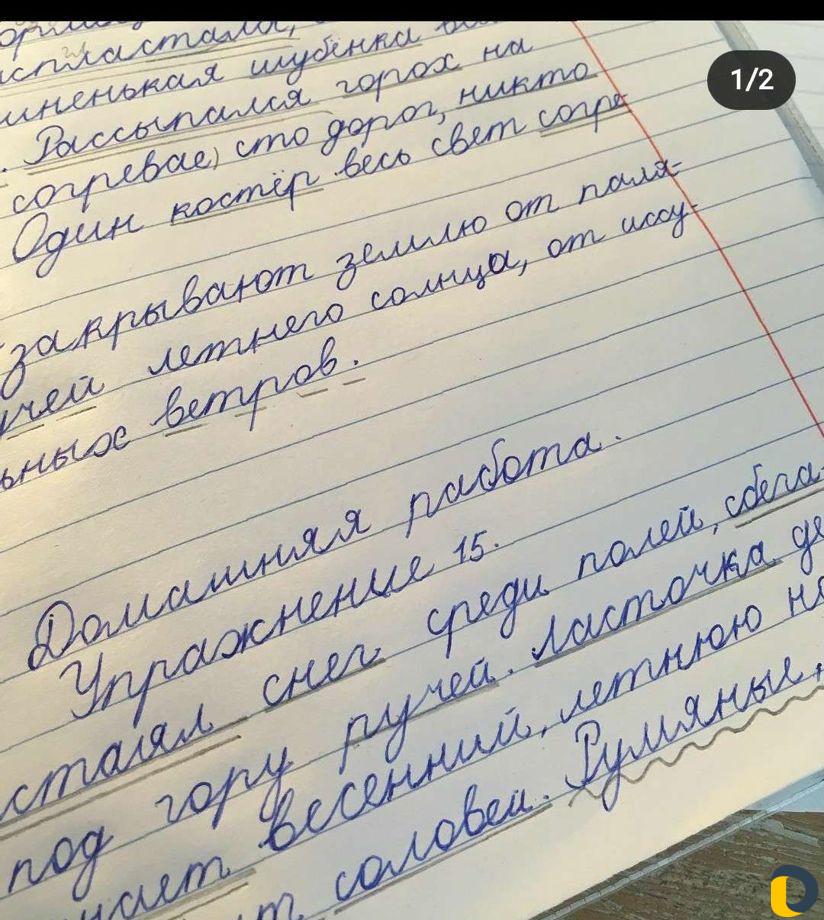 спластала,
иненькая шубёнка
. Рассыпался горох на
согревае) сто дорог, никто
Один костёр весь свет согре-
закрывают землю от паля-
учей летнего солнца, от иссу-
ьных ветров.
Домашняя работа.
Упражнение 15.
стаял снег среди полей, сбега-
под гору ручей. Ласточка де
чает весенний, летнюю но
т соловей. Румяные,
1/2